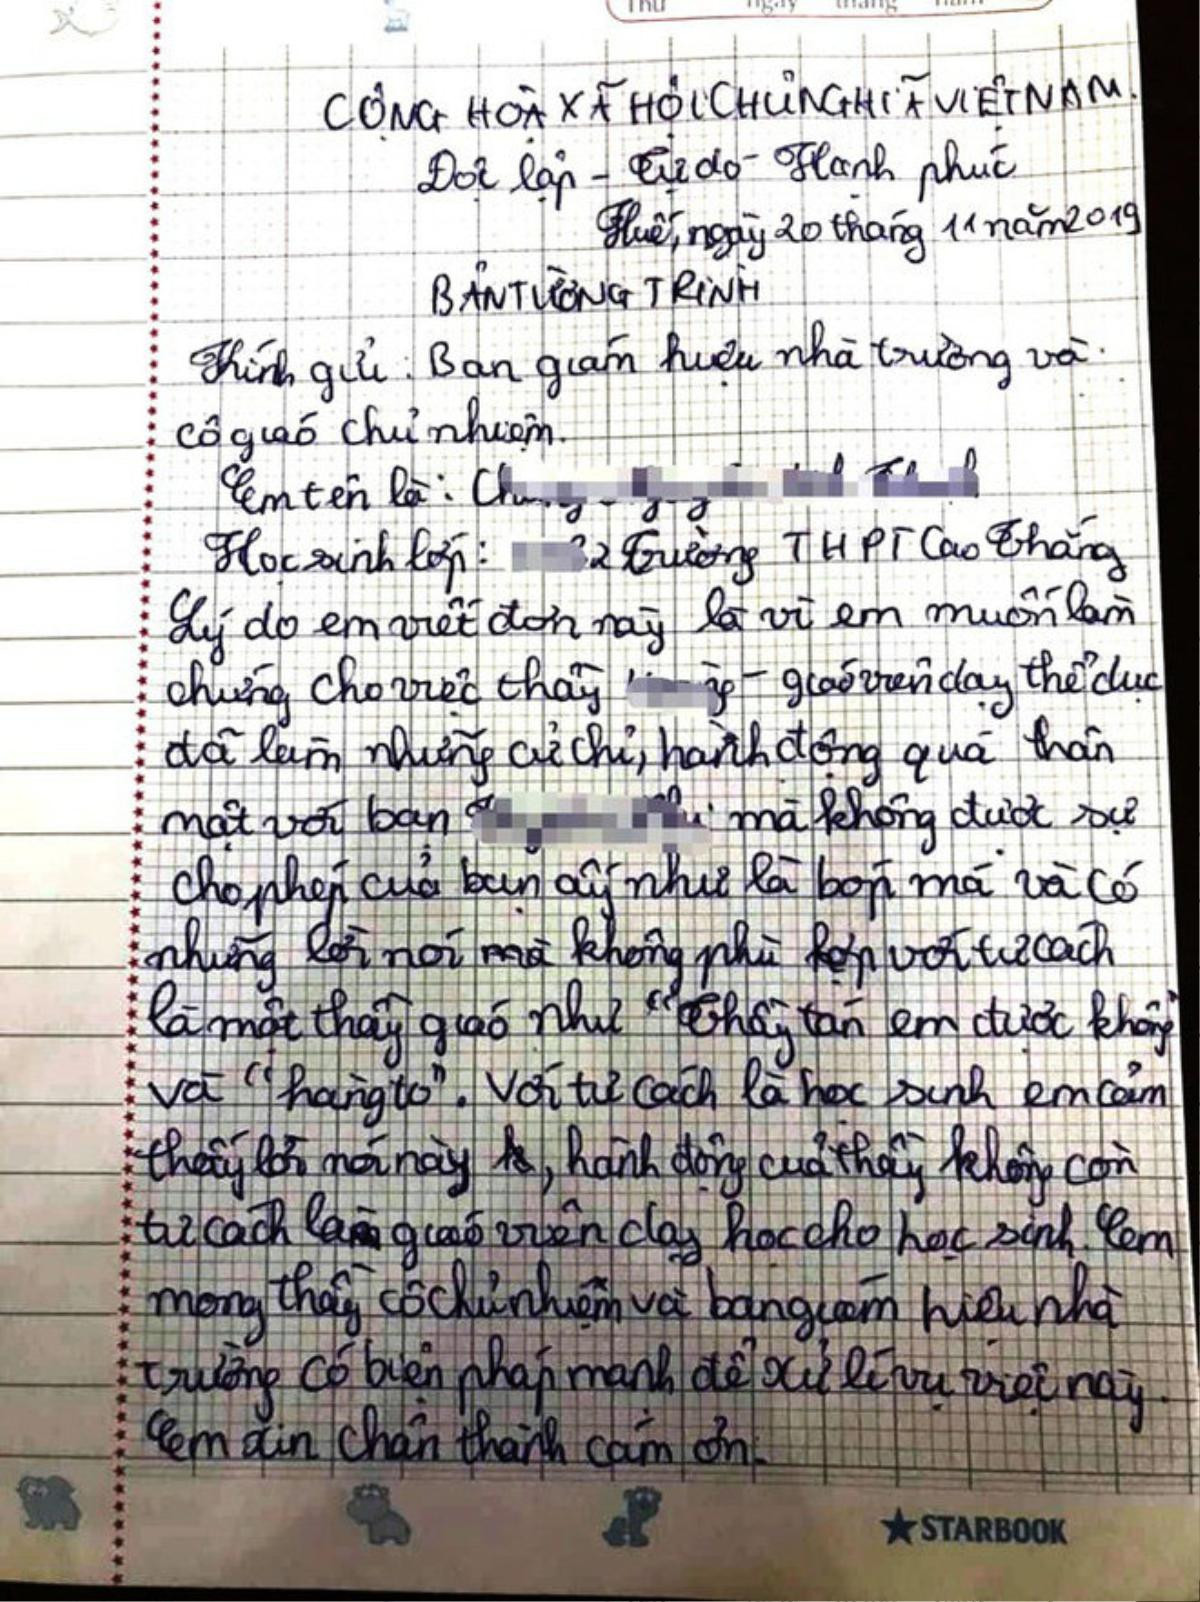 Thứ ngày tháng năm
CỘNG HOÀ XÃ HỘI CHỦ NGHĨA VIỆT NAM.
Độc lập - Tự do - Hạnh phúc
Huế, ngày 20 tháng 11 năm 2019
BẢN TƯỜNG TRÌNH
Kính gửi: Ban giám hiệu nhà trường và
cô giáo chủ nhiệm.
Em tên là:
Học sinh lớp: 2 Trường THPT Cao Thắng
Lý do em viết đơn này là vì em muốn làm
chứng cho việc thầy - giáo viên dạy thể dục
đã làm những cử chỉ, hành động quá thân
mật với bạn mà không được sự
cho phép của bạn ấy như là bóp má và có
những lời nói mà không phù hợp với tư cách
là một thầy giáo như "Thầy tán em được không
và "hàng to". Với tư cách là học sinh em cảm
thấy lời nói này, hành động của thầy không còn
tư cách làm giáo viên dạy học cho học sinh. Em
mong thầy cô chủ nhiệm và ban giám hiệu nhà
trường có biện pháp mạnh để xử lí vụ việc này.
Em xin chân thành cám ơn.
STARBOOK